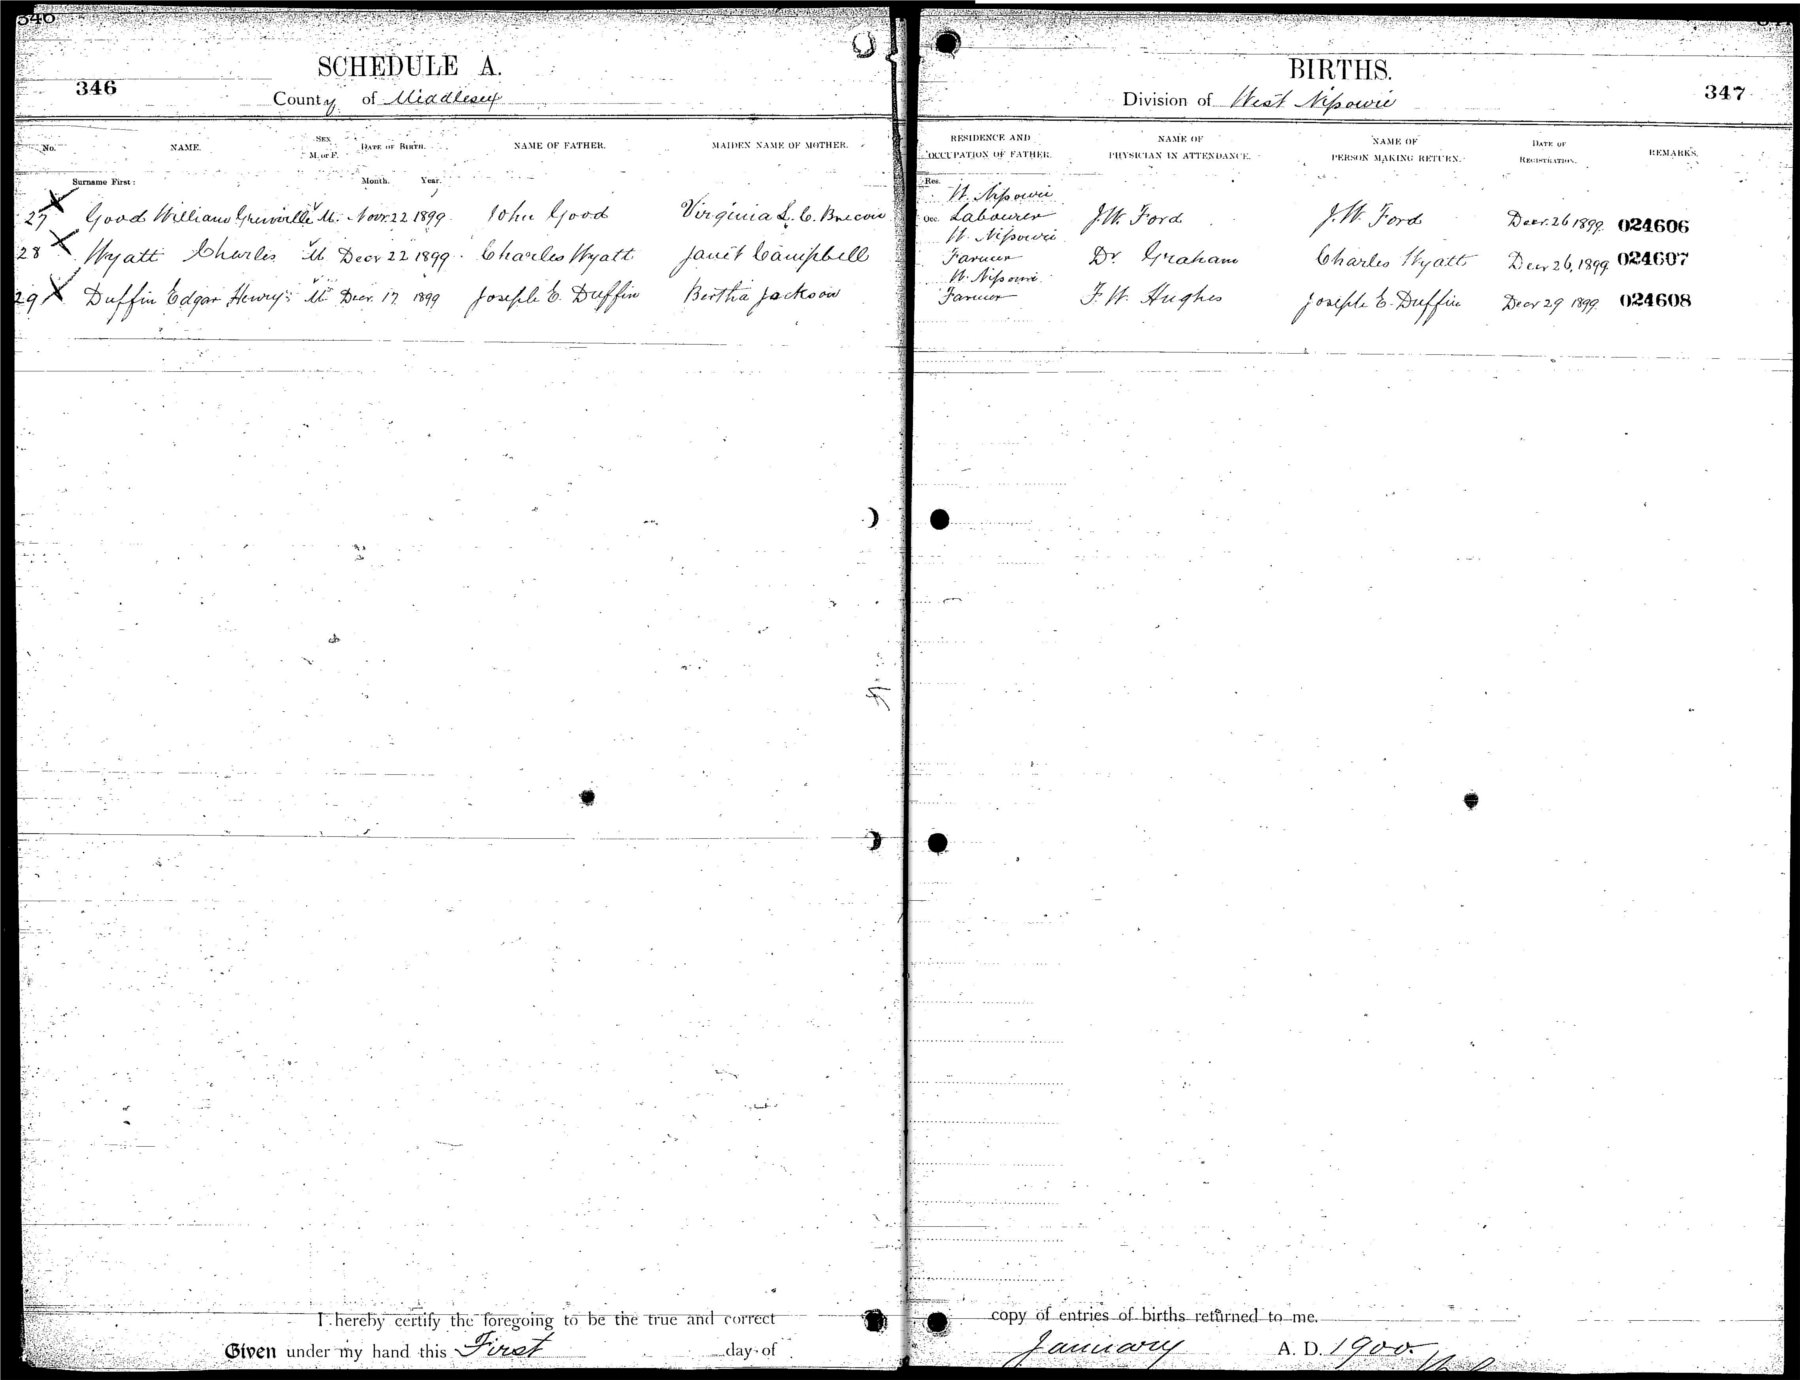 346
SCHEDULE A.
County of Middlesex
No. NAME. SEX M. or F. DATE OF BIRTH. NAME OF FATHER. MAIDEN NAME OF MOTHER.
Surname First: Month. Year.
27 Good William Grenville M. Novr. 22 1899 John Good Virginia L. C.
28 Wyatt Charles M Decr 22 1899 Charles Wyatt Janet Campbell
29 Duffin Edgar Henry M Decr. 17 1899 Joseph E. Duffin Bertha Jackson
I hereby certify the foregoing to be the true and correct
Given under my hand this First day of
BIRTHS.
347
Division of West Nissouri
RESIDENCE AND OCCUPATION OF FATHER. NAME OF PHYSICIAN IN ATTENDANCE. NAME OF PERSON MAKING RETURN. DATE OF REGISTRATION. REMARKS.
Res. W. Nissouri
Occ. Labourer J. W. Ford J. W. Ford Decr. 26 1899 024606
W. Nissouri
Farmer Dr. Graham Charles Wyatt Decr 26, 1899 024607
W. Nissouri
Farmer F. W. Hughes Joseph E. Duffin Decr 29 1899 024608
copy of entries of births returned to me.
January A. D. 1900.